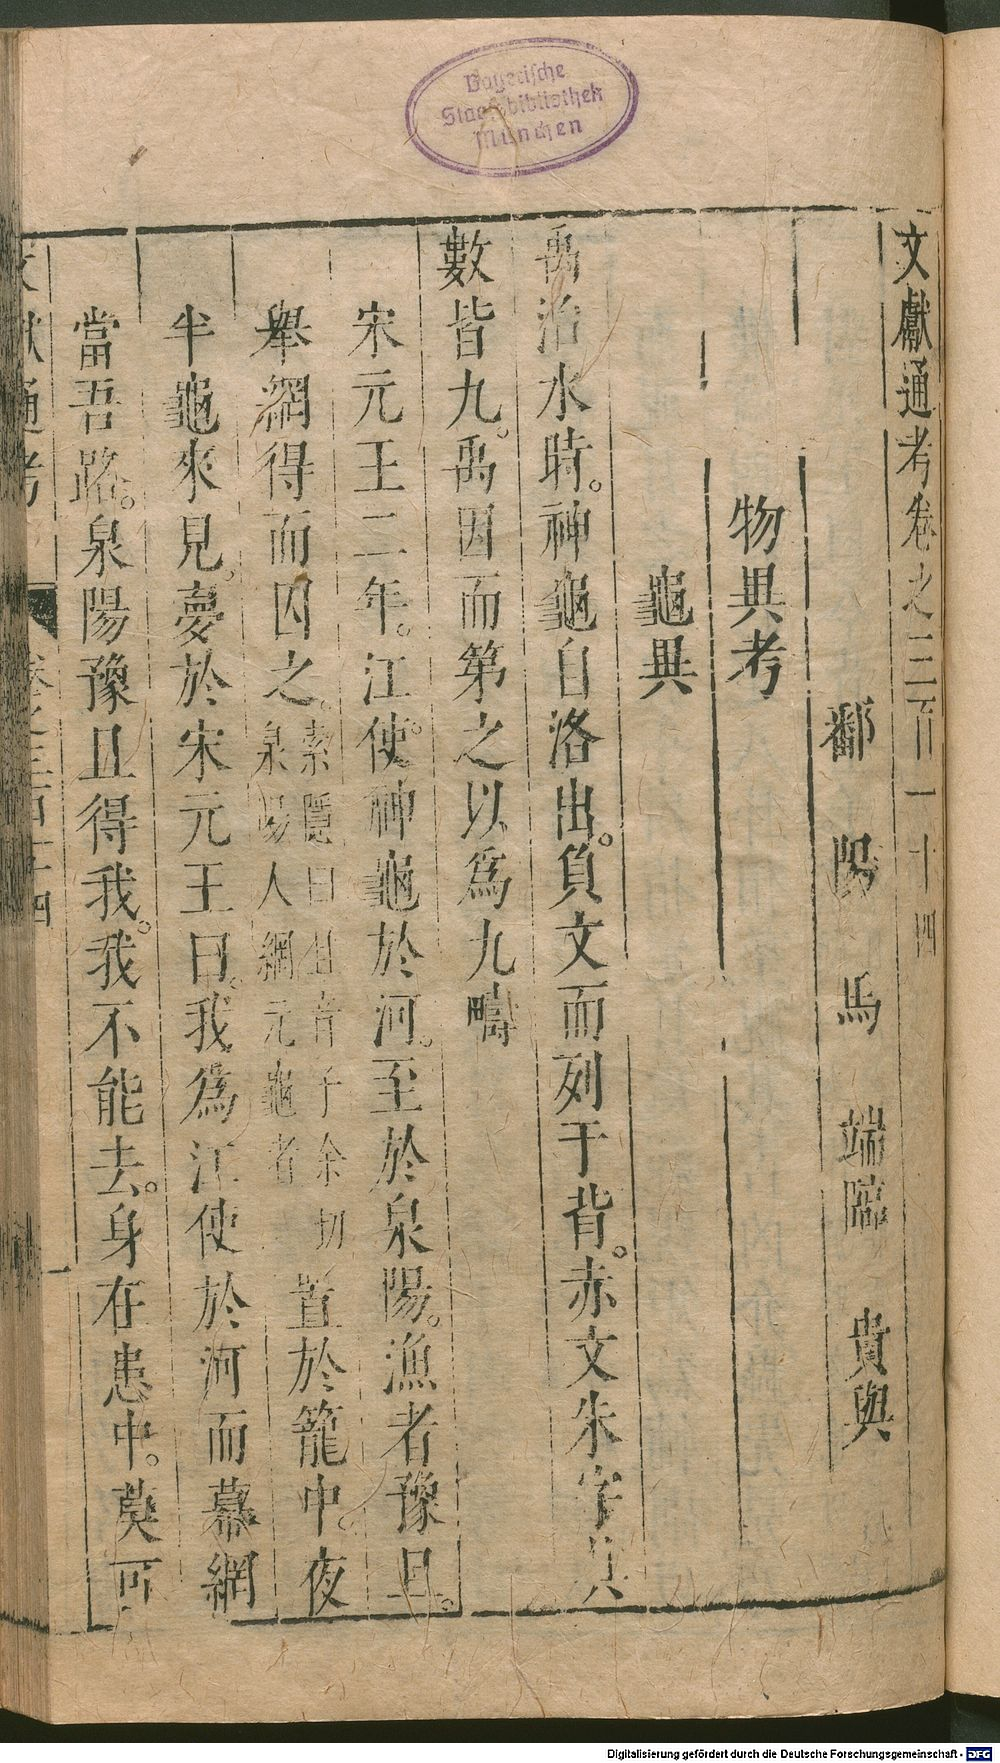 Bayerische
Staatsbibliothek
München
文獻通考卷之三百一十四
鄱陽馬端臨貴與
物異考
龜異
禹治水時。神龜自洛出。負文而列于背。赤文朱字其
數皆九。禹因而第之以為九疇
宋元王二年。江使。神龜於河。至於泉陽。漁者豫且。
舉網得而囚之。索隱曰且音子余切泉陽人網元龜者置於籠中。夜
半龜來見。夢於宋元王曰。我為江使於河而幕網
當吾路。泉陽豫且得我。我不能去。身在患中。莫可
Digitalisierung gefördert durch die Deutsche Forschungsgemeinschaft - DFG